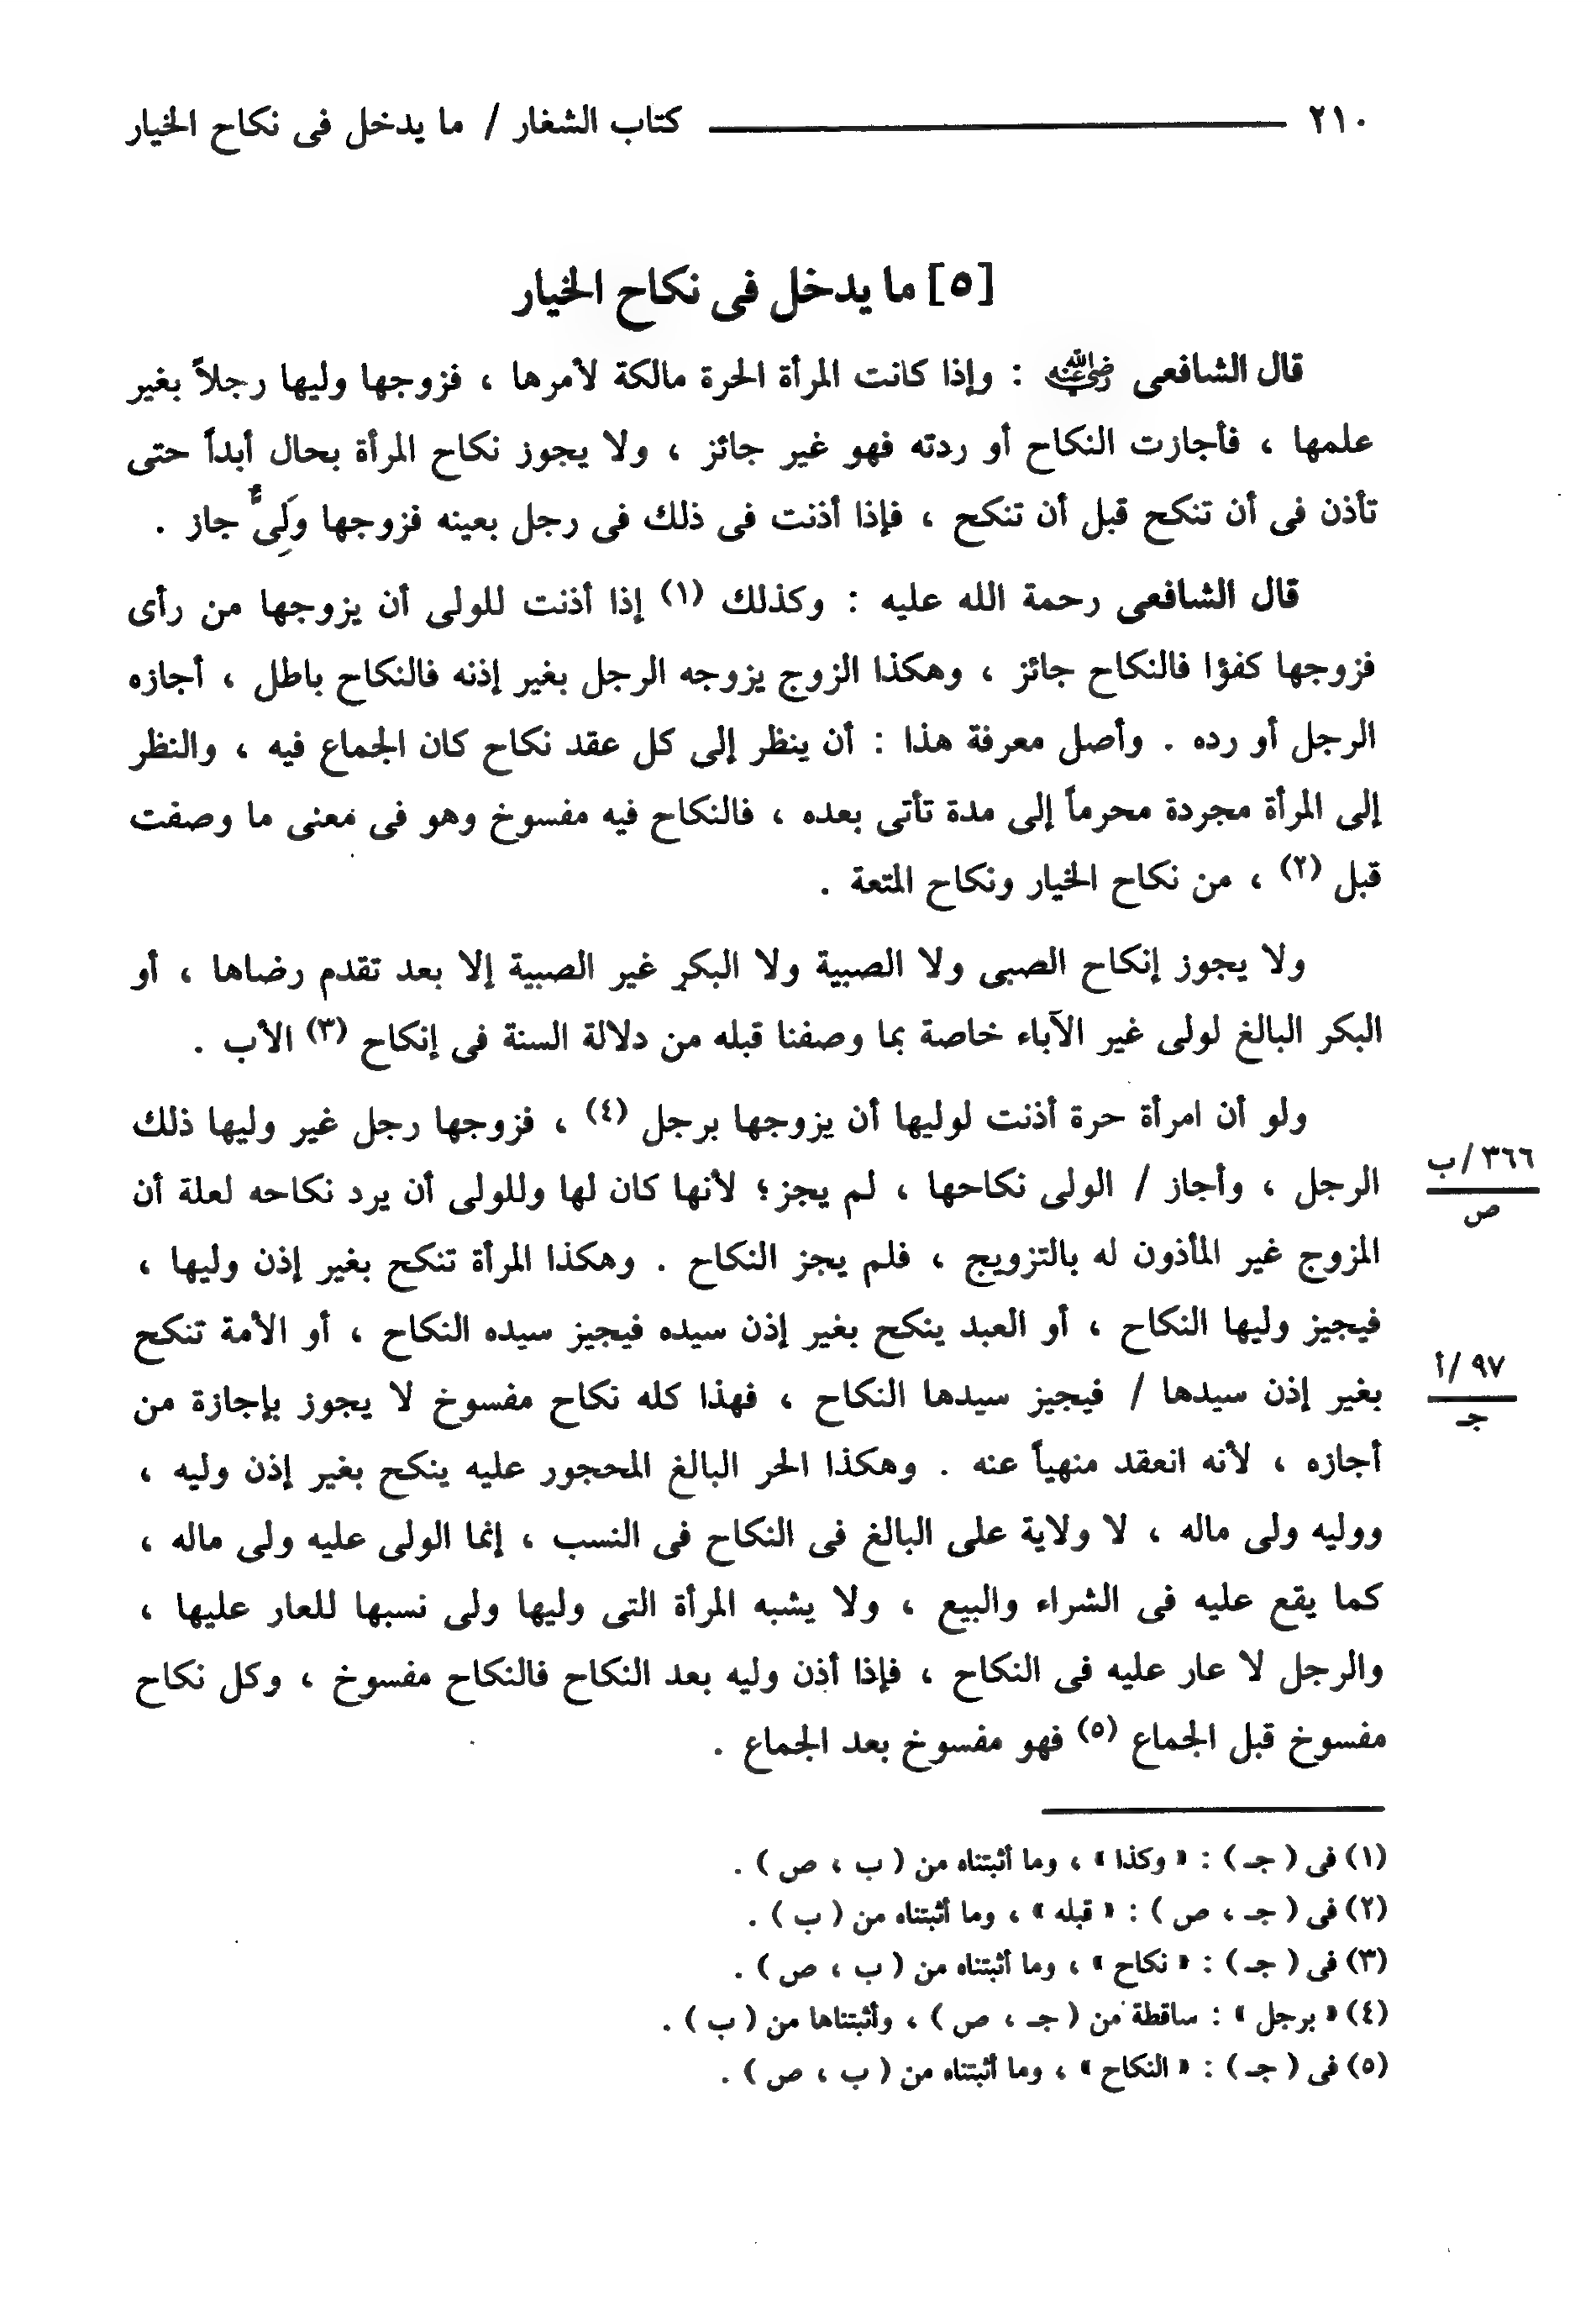 ٢١٠ كتاب الشغار / ما يدخل فى نكاح الخيار
[٥] ما يدخل فى نكاح الخيار
قال الشافعى رضي الله عنه : وإذا كانت المرأة الحرة مالكة لأمرها ، فزوجها وليها رجلاً بغير
علمها ، فأجازت النكاح أو ردته فهو غير جائز ، ولا يجوز نكاح المرأة بحال أبداً حتى
تأذن فى أن تنكح قبل أن تنكح ، فإذا أذنت فى ذلك فى رجل بعينه فزوجها وَلِىٌّ جاز .
قال الشافعى رحمة الله عليه : وكذلك (١) إذا أذنت للولى أن يزوجها من رأى
فزوجها كفؤا فالنكاح جائز ، وهكذا الزوج يزوجه الرجل بغير إذنه فالنكاح باطل ، أجازه
الرجل أو رده . وأصل معرفة هذا : أن ينظر إلى كل عقد نكاح كان الجماع فيه ، والنظر
إلى المرأة مجردة محرماً إلى مدة تأتى بعده ، فالنكاح فيه مفسوخ وهو فى معنى ما وصفت
قبل (٢) ، من نكاح الخيار ونكاح المتعة .
ولا يجوز إنكاح الصبى ولا الصبية ولا البكر غير الصبية إلا بعد تقدم رضاها ، أو
البكر البالغ لولى غير الآباء خاصة بما وصفنا قبله من دلالة السنة فى إنكاح (٣) الأب .
ولو أن امرأة حرة أذنت لوليها أن يزوجها برجل (٤) ، فزوجها رجل غير وليها ذلك
الرجل ، وأجاز / الولى نكاحها ، لم يجز؛ لأنها كان لها وللولى أن يرد نكاحه لعلة أن
٣٦٦/ب
ص
المزوج غير المأذون له بالتزويج ، فلم يجز النكاح . وهكذا المرأة تنكح بغير إذن وليها ،
فيجيز وليها النكاح ، أو العبد ينكح بغير إذن سيده فيجيز سيده النكاح ، أو الأمة تنكح
بغير إذن سيدها / فيجيز سيدها النكاح ، فهذا كله نكاح مفسوخ لا يجوز بإجازة من
٩٧/أ
جـ
أجازه ، لأنه انعقد منهياً عنه . وهكذا الحر البالغ المحجور عليه ينكح بغير إذن وليه ،
ووليه ولى ماله ، لا ولاية على البالغ فى النكاح فى النسب ، إنما الولى عليه ولى ماله ،
كما يقع عليه فى الشراء والبيع ، ولا يشبه المرأة التى وليها ولى نسبها للعار عليها ،
والرجل لا عار عليه فى النكاح ، فإذا أذن وليه بعد النكاح فالنكاح مفسوخ ، وكل نكاح
مفسوخ قبل الجماع (٥) فهو مفسوخ بعد الجماع .
(١) فى ( جـ ) : « وكذا » ، وما أثبتناه من ( ب ، ص ) .
(٢) فى ( جـ ، ص ) : « قبله » ، وما أثبتناه من ( ب ) .
(٣) فى ( جـ ) : « نكاح » ، وما أثبتناه من ( ب ، ص ) .
(٤) « برجل » : ساقطة من ( جـ ، ص ) ، وأثبتناها من ( ب ) .
(٥) فى ( جـ ) : « النكاح » ، وما أثبتناه من ( ب ، ص ) .